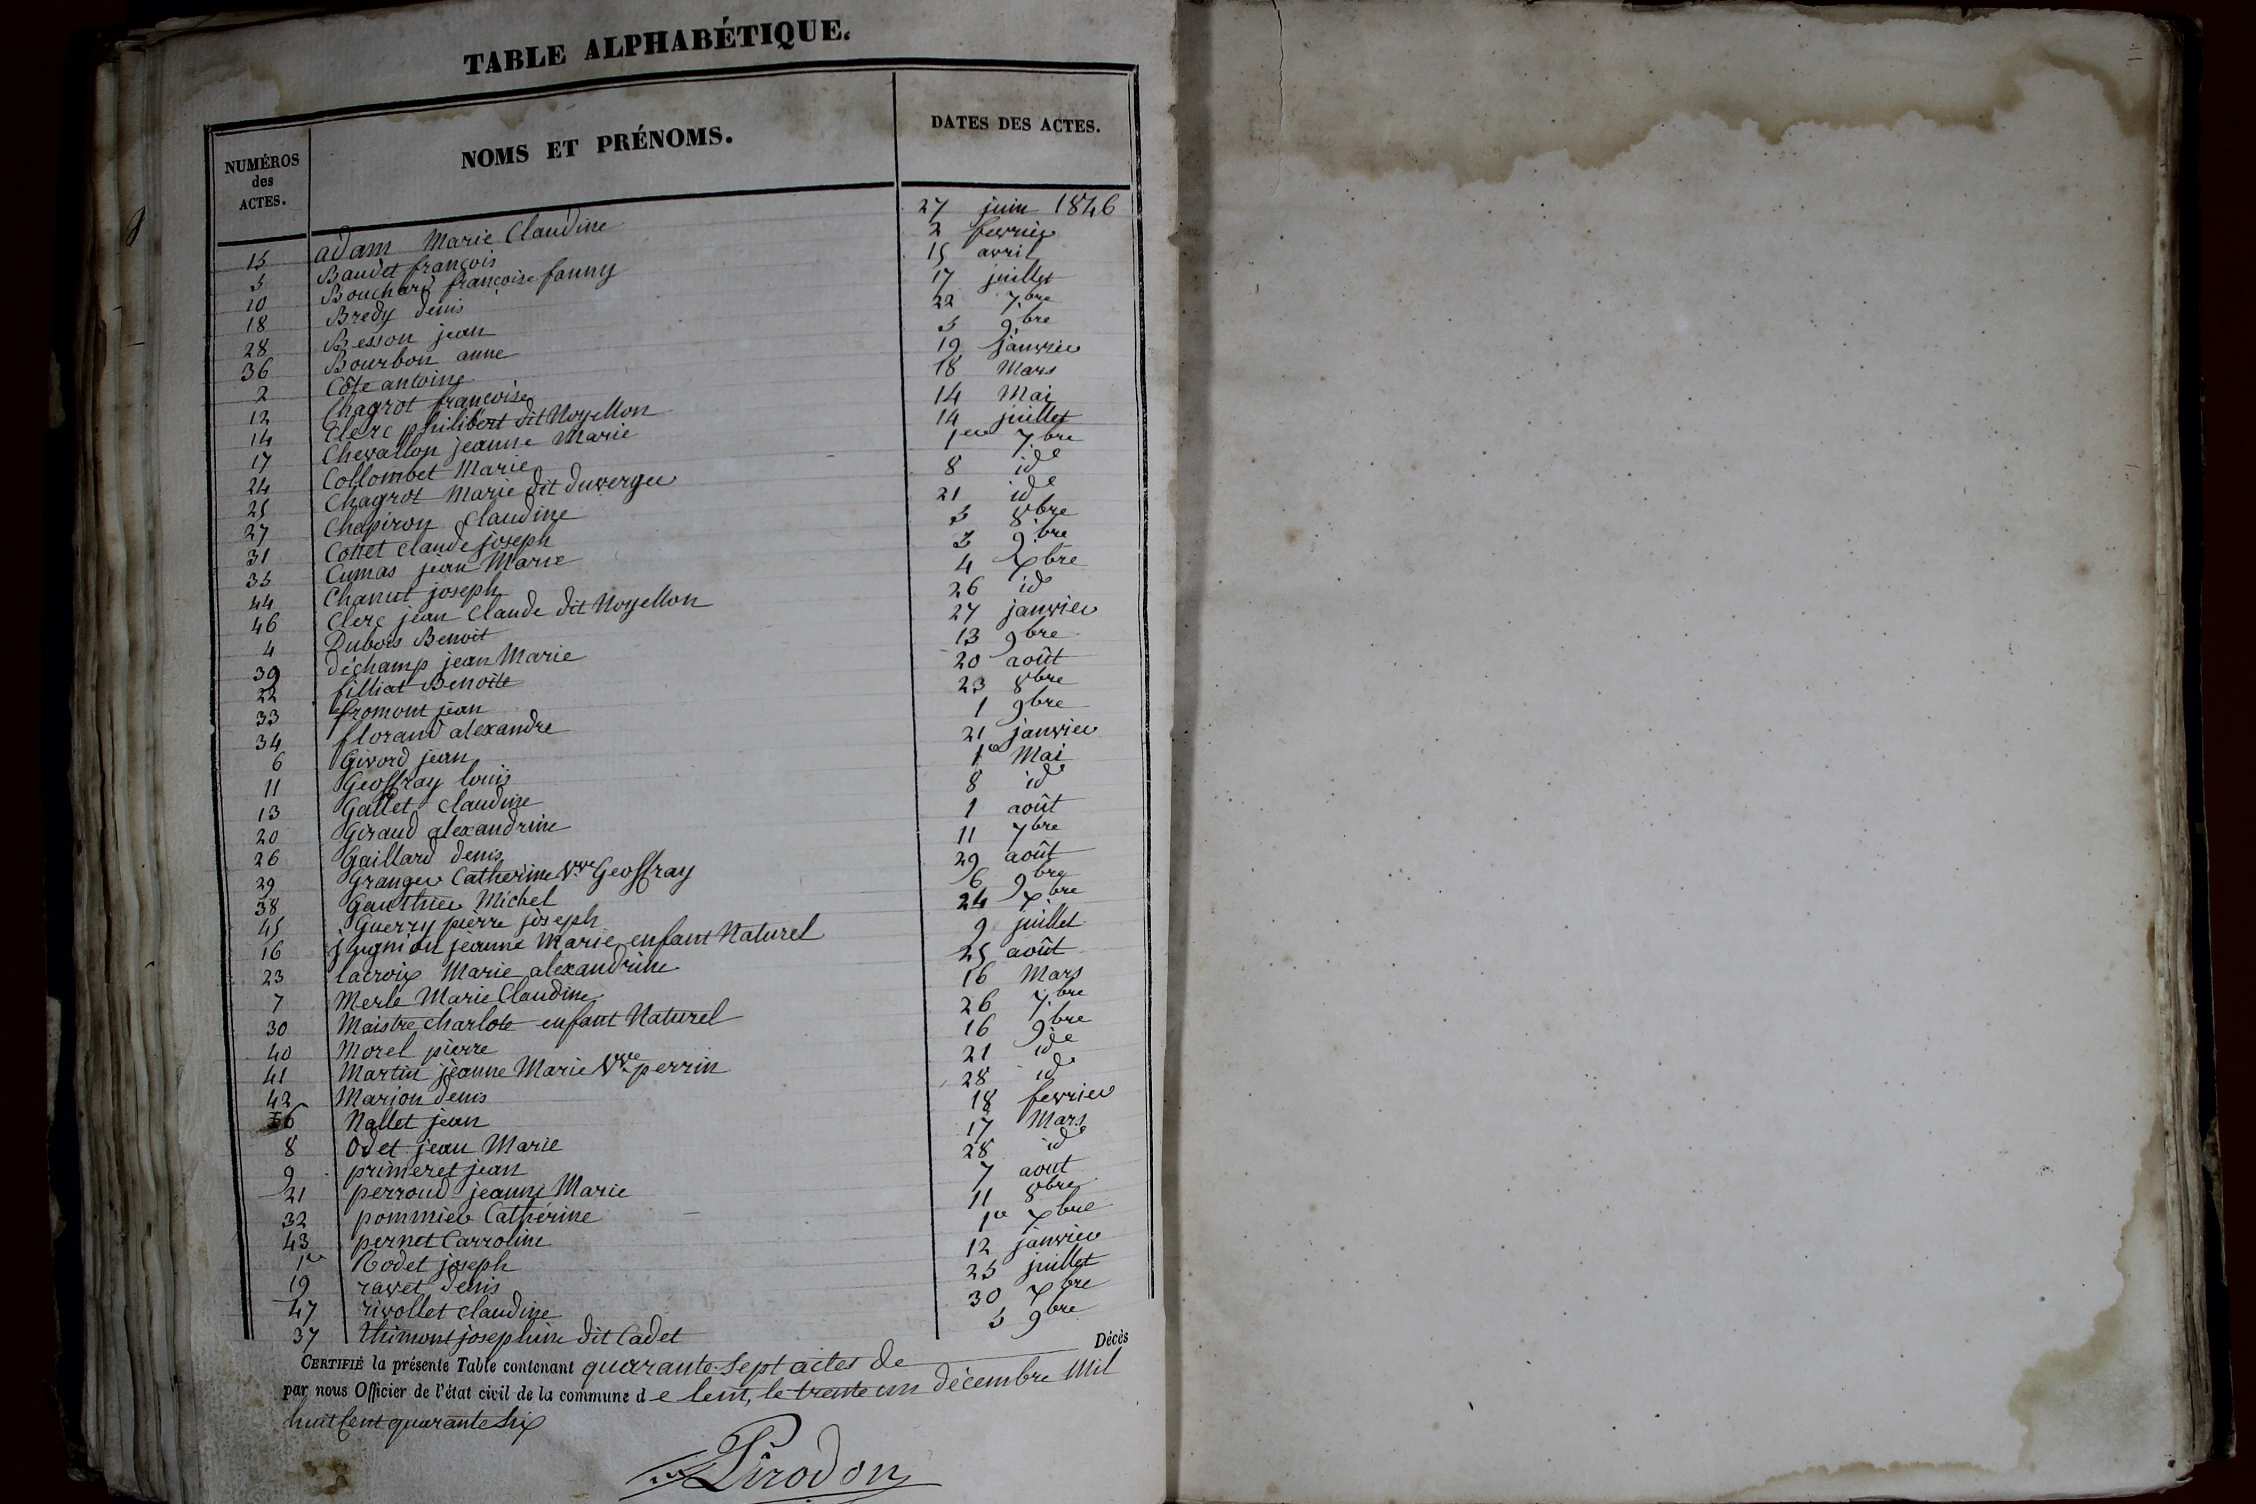 TABLE ALPHABÉTIQUE.
NUMÉROS des ACTES. NOMS ET PRÉNOMS. DATES DES ACTES.
15 adam Marie Claudine 27 juin 1846
5 Baudet françois 2 fevrier
10 Bouchard françoise fanny 15 avril
18 Bredy denis 17 juillet
28 Besson jean 22 7bre
36 Bourbon anne 5 9bre
2 Côte antoine 19 janvier
12 Chagrot françoise 18 Mars
14 Clerc philibert dit Noyellon 14 Mai
17 Chevallon jeanne Marie 14 juillet
24 Collombet Marie 1er 7bre
25 Chagrot Marie dit duverger 8 ide
27 Chapiron Claudine 21 ide
31 Cottet Claude joseph 5 8bre
35 Cumas jean Marie 3 9bre
44 Chanut joseph 4 Xbre
46 Clerc jean Claude dit Noyellon 26 ide
4 Dubois Benoit 27 janvier
39 déchamp jean Marie 13 9bre
22 filliat Benoite 20 août
33 fromont jean 23 8bre
34 florand alexandre 1 9bre
6 Givord jean 21 janvier
11 Geoffray louis 1er Mai
13 Gallet Claudine 8 ide
20 Giraud alexandrine 1 août
26 Gaillard denis 11 7bre
29 Granger Catherine Vve Geoffray 29 août
38 Gauthier Michel 6 9bre
45 Guerry pierre joseph 24 Xbre
16 jugnion jeanne Marie enfant Naturel 9 juillet
23 lacroix Marie alexandrine 25 août
7 Merle Marie Claudine 16 Mars
30 Maistre charlote enfant Naturel 26 7bre
40 Morel pierre 16 9bre
41 Martin jeanne Marie Vve perrin 21 ide
42 Marion denis 28 ide
6 Nallet jean 18 fevrier
8 Odet jean Marie 17 Mars
9 primeret jean 28 ide
21 perroud jeanne Marie 7 aout
32 pommier Cathérine 11 8bre
43 pernet Carroline 1er Xbre
1er Rodet joseph 12 janvier
19 ravet denis 25 juillet
47 rivollet claudine 30 Xbre
37 thimont josephine dit Cadet 5 9bre
CERTIFIÉ la présente Table contenant quarante-sept actes de Décès
par nous Officier de l'état civil de la commune de lent, le trente un décembre Mil
huit Cent quarante Six
Pirodon